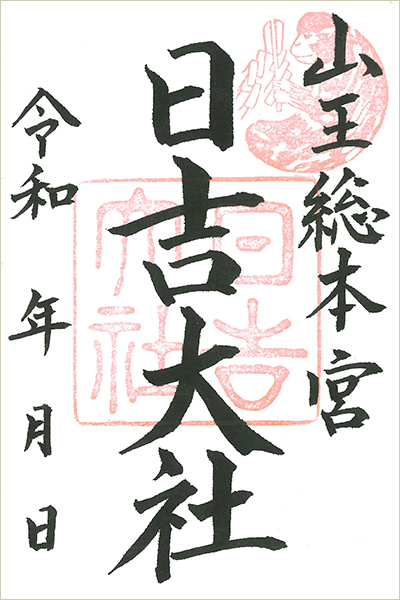 山王総本宮
日吉大社
令和　年　月　日
日吉
大社